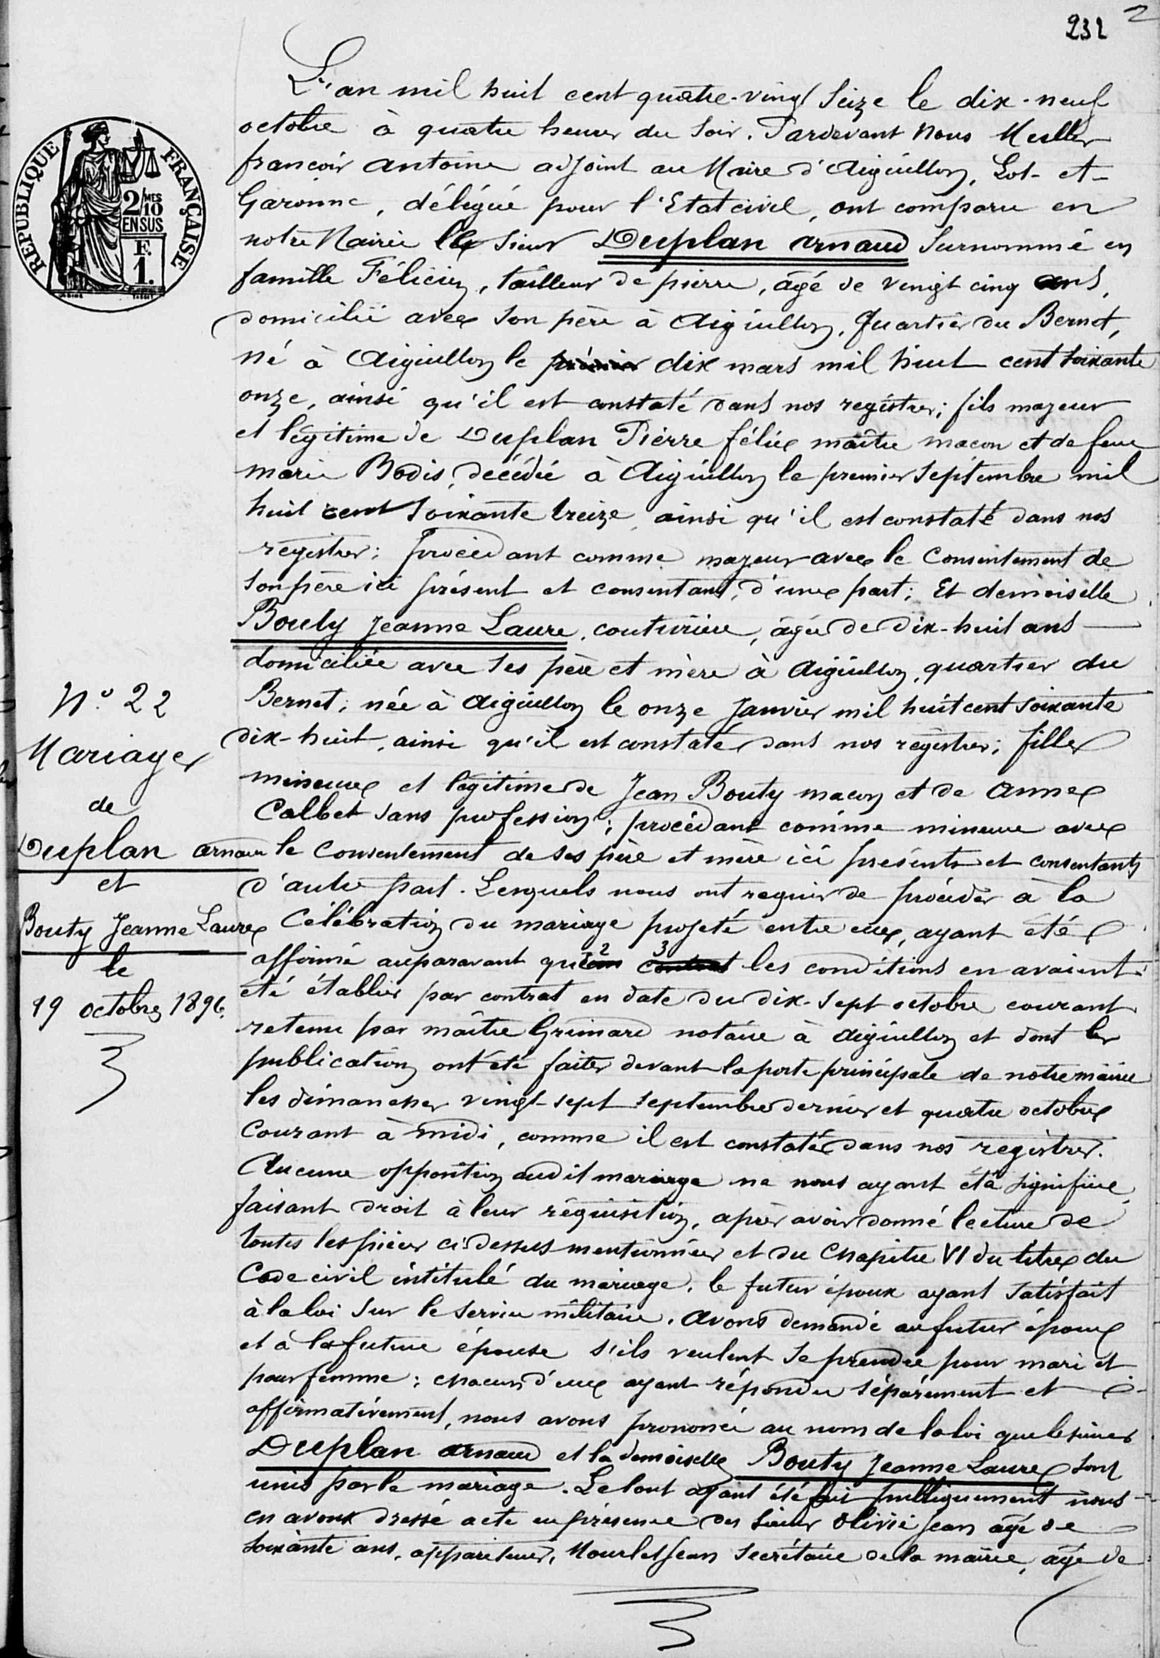 232 2
L'an mil huit cent quatre-vingt seize le dix-neuf
octobre à quatre heures du soir. Pardevant Nous Muller
françois antoine adjoint au Maire d'Aiguillon, Lot-et-
Garonne, délégué pour l'Etat civil, ont comparu en
notre Mairie le sieur Duplan arnaud surnommé en
famille Félicien, tailleur de pierre, âgé de vingt cinq ans,
domicilié avec son père à Aiguillon, quartier du Bernet,
né à Aiguillon le premier dix mars mil huit cent soixante
onze, ainsi qu'il est constaté dans nos registres; fils majeur
et légitime de Duplan Pierre félix maître macon et de feue
marie Bodis, décédée à Aiguillon le premier septembre mil
huit cent soixante treize ainsi qu'il est constaté dans nos
registres; procédant comme majeur avec le consentement de
son père ici présent et consentant, d'une part; Et demoiselle
Bouty Jeanne Laure, couturière, âgée de dix-huit ans
domiciliée avec ses père et mère à Aiguillon, quartier du
Bernet, née à Aiguillon le onze Janvier mil huit cent soixante
dix-huit, ainsi qu'il est constaté dans nos registres; fille
mineure et légitime de Jean Bouty macon et de Anne
Calbet sans profession; procédant comme mineure avec
le consentement de ses père et mère ici présents et consentants
d'autre part. Lesquels nous ont requis de procéder à la
célébration du mariage projeté entre eux, ayant été
affirmé auparavant que 2 3 contrat les conditions en avaient
été établies par contrat en date du dix-sept octobre courant
retenu par maître Grimard notaire à Aiguillon et dont les
publications ont été faites devant la porte principale de notre mairie
les dimanches vingt-sept septembre dernier et quatre octobre
courant à midi, comme il est constaté dans nos registres.
Aucune opposition audit mariage ne nous ayant été signifiée,
faisant droit à leur réquisition, après avoir donné lecture de
toutes les pièces ci dessus mentionnées et du chapitre VI du titre du
Code civil intitulé du mariage. le futur époux ayant satisfait
à la loi sur le service militaire. Avons demandé au futur époux
et à la future épouse s'ils veulent se prendre pour mari et
pour femme; chacun d'eux ayant répondu séparément et
affirmativement, nous avons prononcé au nom de la loi que le sieur
Duplan arnaud et la demoiselle Bouty Jeanne Laure sont
unis par le mariage. Le tout ayant été fait publiquement nous
en avons dressé acte en présence des sieurs Olivié Jean âgé de
soixante ans, appariteur, Mourlet Jean secrétaire de la mairie, âgé de
N° 22
Mariage
de
Duplan arnaud
et
Bouty Jeanne Laure
le
19 octobre 1896.
RÉPUBLIQUE FRANÇAISE
2/10 MES
EN SUS
F.
1.